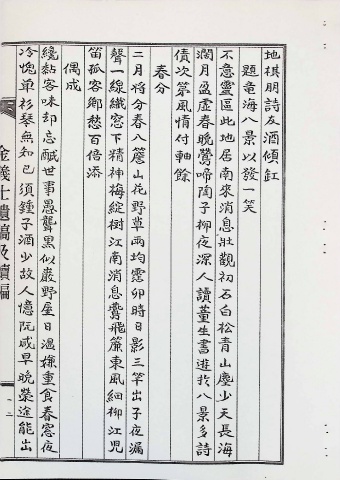 地棋朋詩友酒傾缸
題竜海八景以發一笑
不意靈區此地居南來消息壯觀初石白松青山塵少天長海
濶月盈虛春晚鶯啼陶子柳夜深人讀董生書遊於八景多詩
債次第風情付軸餘
春分
二月將分春八蓂山花野草雨均霑卯時日影三竿出子夜漏
聲一線纖窓下精神梅綻樹江南消息鷰飛簾東風細柳江児
笛孤客鄉愁百倍添
偶成
纔黏客味却忘醎世事愚聾黑似巖野屋日溫嫌重食春窓夜
冷愧單衫琴無知已須鍾子酒少故人憶阮咸早晚榮途能出
金義士遺稿及續編
十二